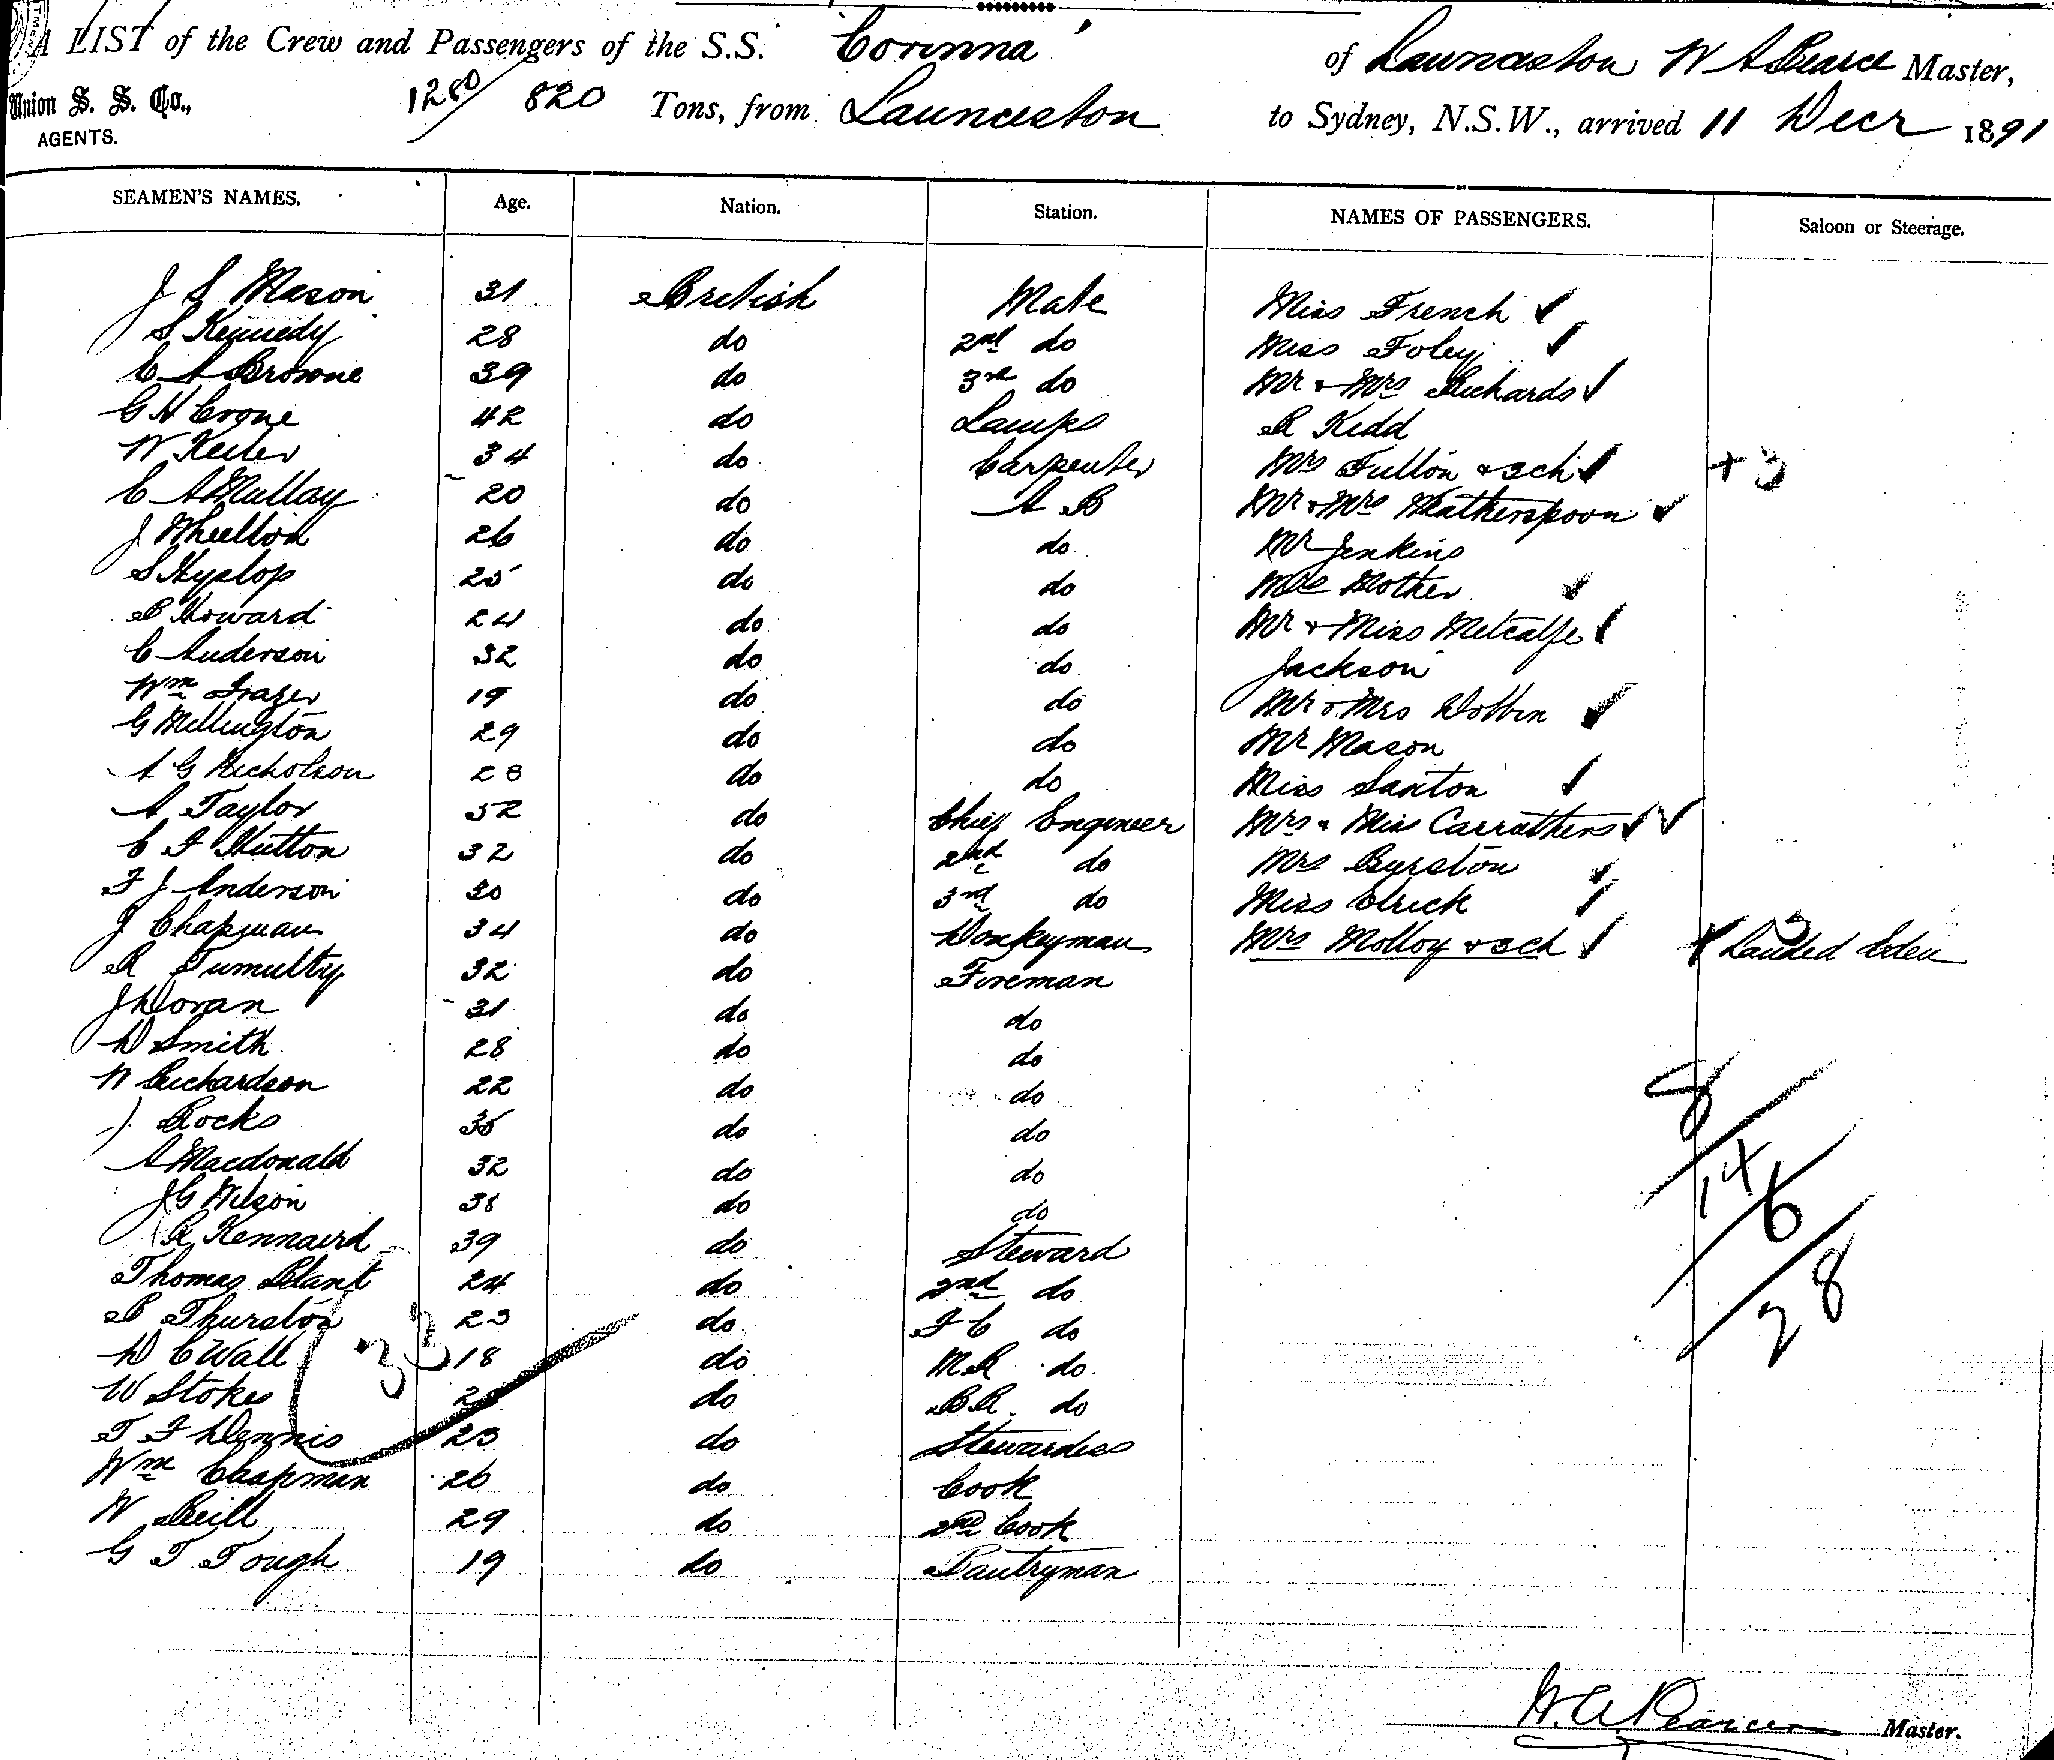 A LIST of the Crew and Passengers of the S.S. "Corinna" of Launceston W A Pearce Master,
Union S. S. Co., 1280/820 Tons, from Launceston to Sydney, N.S.W., arrived 11 Decr 1891
AGENTS.
SEAMEN'S NAMES. Age. Nation. Station. NAMES OF PASSENGERS. Saloon or Steerage.
J S Mason 31 British Mate Miss French
S Kennedy 28 do 2nd do Miss Foley
E A Browne 39 do 3rd do Mr & Mrs Richards
G H Crone 42 do Lamps R Kidd
W Keiler 34 do Carpenter Mrs Fulton & 3 ch + 3
C A Mullay 20 do A B Mr & Mrs Weatherspoon
J Wheelton 26 do do Mr Jenkins
S Hyslop 25 do do Mrs Mother
P Howard 24 do do Mr & Miss Metcalfe
C Anderson 32 do do Jackson
Wm Frazer 19 do do Mr & Mrs Dobbin
G Millington 29 do do Mr Mason
A G Nicholson 28 do do Miss Santon
A Taylor 52 do Chief Engineer Mrs & Miss Carruthers
C F Hutton 32 do 2nd do Mrs Burston
F J Anderson 30 do 3rd do Miss Ulrick
J Chapman 34 do Donkeyman Mrs Molloy & 3 ch 3 Landed Eden
R Tumulty 32 do Fireman
J Doran 31 do do
D Smith 28 do do
W Richardson 22 do do
J Rocks 35 do do
A Macdonald 32 do do
J G Wilson 38 do do
R Kennaird 39 do Steward
Thomas Plant 24 do 2nd do
P Thurston 23 do F C do
D C Wall 18 do M R do
W Stokes do B R do
T F Dennis 23 do Stewardess
Wm Chapman 26 do Cook
W Neill 29 do 2nd Cook
G T Tough 19 do Pantryman
33
8/14/6/28
W. A. Pearce Master.